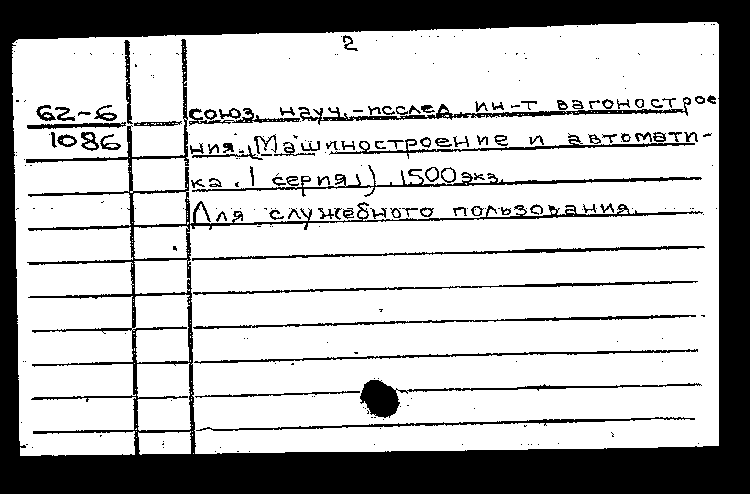 2
62-6
1086
союз. науч.-исслед. ин-т вагонострое
ния. (Машиностроение и автомати-
ка. 1 серия,) .1500экз.
Для служебного пользования.